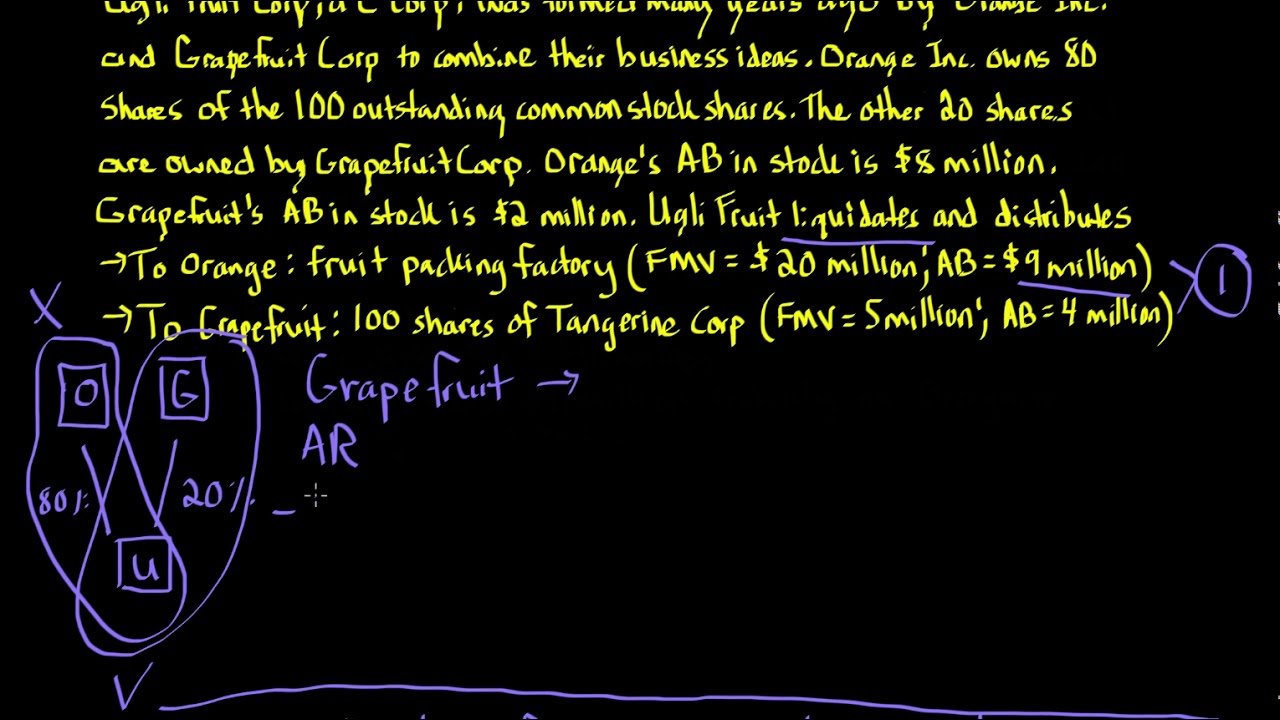 Ugli Fruit Corp, a C Corp, was formed many years ago by Orange Inc.
and Grapefruit Corp to combine their business ideas. Orange Inc. owns 80
shares of the 100 outstanding common stock shares. The other 20 shares
are owned by Grapefruit Corp. Orange's AB in stock is $8 million.
Grapefruit's AB in stock is $2 million. Ugli Fruit liquidates and distributes
→To Orange: fruit packing factory (FMV = $20 million; AB = $9 million)
→To Grapefruit: 100 shares of Tangerine Corp (FMV = 5 million; AB = 4 million)
1
X
O
G
Grapefruit →
AR
80%
20%
U